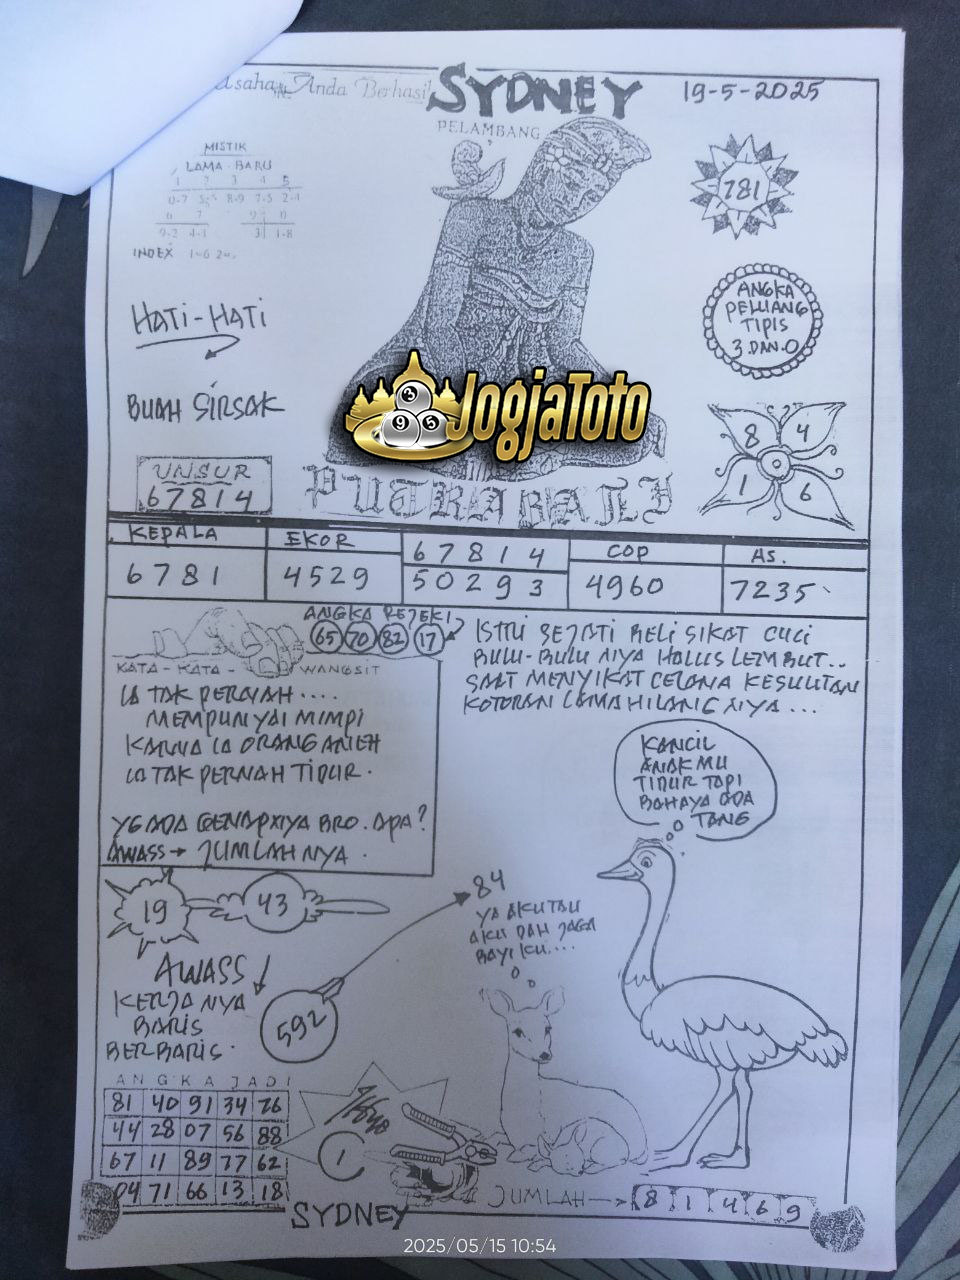 Usaha Anda Berhasil
SYDNEY
19-5-2025
PELAMBANG
MISTIK
LAMA - BARU
1 2 3 4 5
0-7 8-9 7-5 2-4
6 7 9 0
9-2 4-1 3 1-8
INDEX 1-6
781
HATI-HATI
ANGKA
PELUANG
TIPIS
3 DAN 0
JogjaToto
3
9 5
BUAH SIRSAK
8 4
1 6
UNSUR
67814
PUTRA BALI
KEPALA
EKOR
67814
COP
AS.
6781
4529
50293
4960
7235
ANGKA REJEKI
65 70 82 17
KATA - KATA - WANGSIT
IA TAK PERNAH....
MEMPUNYAI MIMPI
KARNA IA ORANG ANEH
IA TAK PERNAH TIDUR.
YG ADA GENAPXIYA BRO. APA?
AWASS → JUMLAHNYA.
ISTRI SEJATI BELI SIKAT CUCI
BULU-BULU NIYA HALUS LEMBUT..
SAAT MENYIKAT CELANA KESULITAN
KOTORAN LAMA HILANG NIYA...
KANCIL
ANAK MU
TIDUR TAPI
BAHAYA ADA
TANG
19
43
84
YA AKU TAU
AKU DAH JAGA
BAYI KU....
AWASS
KERJA NYA
BARIS
BERBARIS.
592
ANGKA JADI
81 40 91 34 26
44 28 07 56 88
67 11 89 77 62
04 71 66 13 18
1
JUMLAH → 8 1 4 6 9
SYDNEY
2025/05/15 10:54